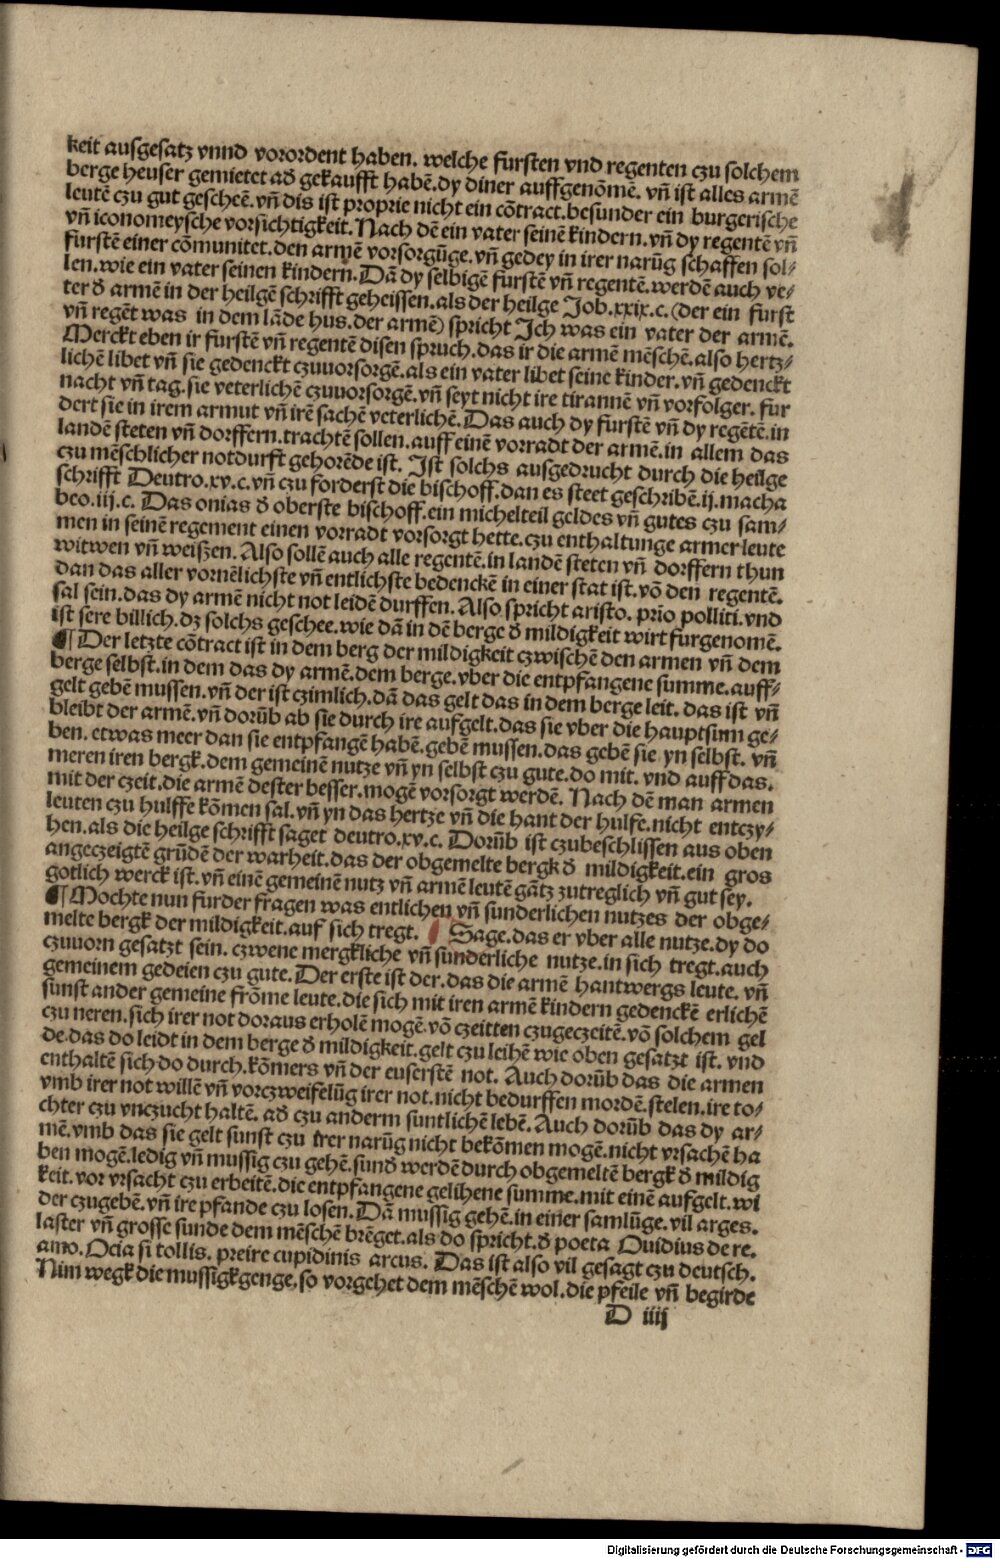 keit ausgesatz vnnd vorordent haben. welche fursten vnd regenten czu solchem
berge heuser gemietet ad gekaufft habē. dy diner auffgenōmē. vñ ist alles armē
leutē czu gut gescheē. vñ dis ist proprie nicht ein cōtract. besunder ein burgerische
vñ iconomeysche vorsichtigkeit. Nach dē ein vater seinē kindern. vñ dy regentē vñ
furstē einer cōmunitet. den armē vorsorgūge. vñ gedey in irer narūg schaffen sol⸗
len. wie ein vater seinen kindern. Dā dy selbigē furstē vñ regentē. werdē auch ve⸗
ter d̄ armē in der heilgē schrifft geheissen. als der heilge Job. xxix. c. (der ein furst
vñ regēt was in dem lāde hus. der armē) spricht Ich was ein vater der armē.
Merckt eben ir furstē vñ regentē disen spruch. das ir die armē mēschē. also hertz⸗
lichē libet vñ sie gedenckt czuuorsorgē. als ein vater libet seine kinder. vñ gedenckt
nacht vñ tag. sie veterlichē czuuorsorgē. vñ seyt nicht ire tirannē vñ vorfolger. fur
dert sie in irem armut vñ irē sachē veterlichē. Das auch dy furstē vñ dy regētē. in
landē steten vñ dorffern. trachtē sollen. auff einē vorradt der armē. in allem das
czu mēschlicher notdurft gehorēde ist. Ist solchs ausgedrucht durch die heilge
schrifft Deutro. xv. c. vñ czu forderst die bischoff. dan es steet geschribē. ij. macha
beo. iij. c. Das onias d̄ oberste bischoff. ein michelteil geldes vñ gutes czu sam⸗
men in seinē regement einen vorradt vorsorgt hette. czu enthaltunge armer leute
witwen vñ weißen. Also sollē auch alle regentē. in landē steten vñ dorffern thun
dan das aller vornēlichste vñ entlichste bedenckē in einer stat ist. vō den regentē.
sal sein. das dy armē nicht not leidē durffen. Also spricht aristo. prīo polliti. vnd
ist sere billich. dz solchs geschee. wie dā in dē berge d̄ mildigkeit wirt furgenomē.
¶ Der letzte cōtract ist in dem berg der mildigkeit czwischē den armen vñ dem
berge selbst. in dem das dy armē. dem berge. vber die entpfangene summe. auff⸗
gelt gebē mussen. vñ der ist czimlich. dā das gelt das in dem berge leit. das ist vñ
bleibt der armē. vñ dorūb ab sie durch ire aufgelt. das sie vber die hauptsum ge⸗
ben. etwas meer dan sie entpfangē habē. gebē mussen. das gebē sie yn selbst. vñ
meren iren bergk. dem gemeinē nutze vñ yn selbst czu gute. do mit. vnd auff das.
mit der czeit. die armē dester besser. mogē vorsorgt werdē. Nach dē man armen
leuten czu hulffe kōmen sal. vñ yn das hertze vñ die hant der hulfe. nicht entczy⸗
hen. als die heilge schrifft saget deutro. xv. c. Dorūb ist czubeschlissen aus oben
angeczeigtē grūdē der warheit. das der obgemelte bergk d̄ mildigkeit. ein gros
gotlich werck ist. vñ einē gemeinē nutz vñ armē leutē gātz zutreglich vñ gut sey.
¶ Mochte nun furder fragen was entlichen vñ sunderlichen nutzes der obge⸗
melte bergk der mildigkeit. auf sich tregt. Sage. das er vber alle nutze. dy do
czuuorn gesatzt sein. czwene mergkliche vñ sunderliche nutze. in sich tregt. auch
gemeinem gedeien czu gute. Der erste ist der. das die armē hantwergs leute. vñ
sunst ander gemeine frōme leute. die sich mit iren armē kindern gedenckē erlichē
czu neren. sich irer not doraus erholē mogē. vō czeitten czugeczeitē. vō solchem gel
de. das do leidt in dem berge d̄ mildigkeit. gelt czu leihē wie oben gesatzt ist. vnd
enthaltē sich do durch. kōmers vñ der euserstē not. Auch dorūb das die armen
vmb irer not willē vñ vorczweifelūg irer not. nicht bedurffen mordē. stelen. ire to⸗
chter czu vnczucht haltē. ad czu anderm suntlichē lebē. Auch dorūb das dy ar⸗
mē. vmb das sie gelt sunst czu irer narūg nicht bekōmen mogē. nicht vrsachē ha
ben mogē. ledig vñ mussig czu gehē. sund̄ werdē durch obgemeltē bergk d̄ mildig
keit. vor vrsacht czu erbeitē. die entpfangene gelihene summe. mit einē aufgelt. wi
der czugebē. vñ ire pfande czu losen. Dā mussig gehē. in einer samlūge. vil arges.
laster vñ grosse sunde dem mēschē brēget. als do spricht. d̄ poeta Ouidius de re.
amo. Ocia si tollis. preire cupidinis arcus. Das ist also vil gesagt czu deutsch.
Nim wegk die mussigkgenge, so vorgehet dem mēschē wol. die pfeile vñ begirde
D iiij
Digitalisierung gefördert durch die Deutsche Forschungsgemeinschaft - DFG